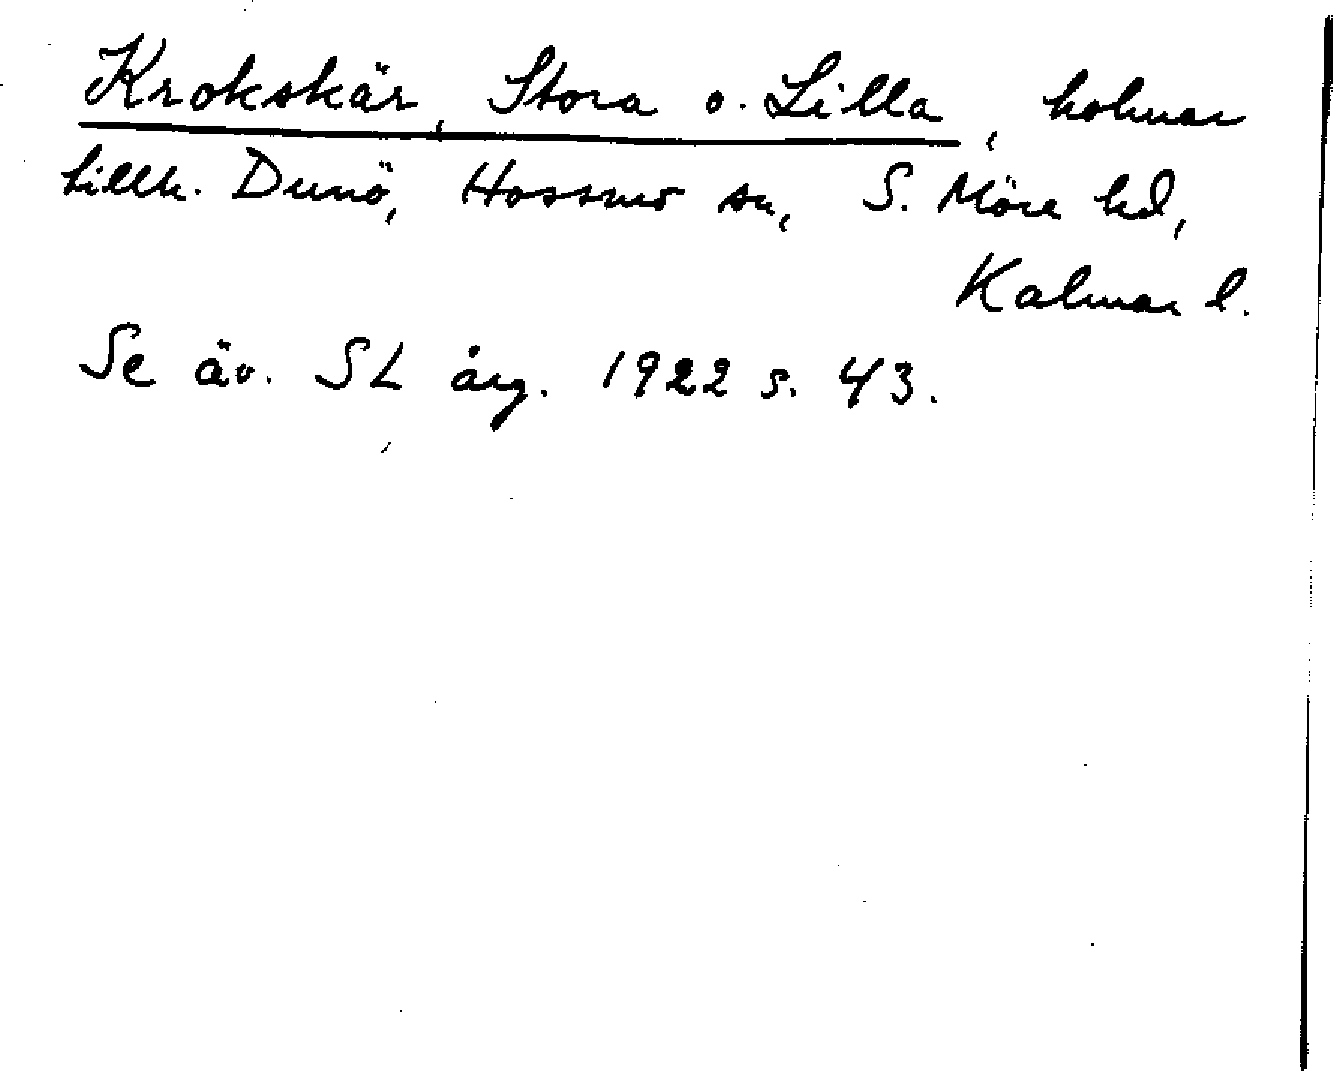 Krokskär, Stora o. Lilla, holmar
tillh. Dunö, Hossmo sn, S. Möre hd,
Kalmar l.
Se äv. SL årg. 1922 s. 43.